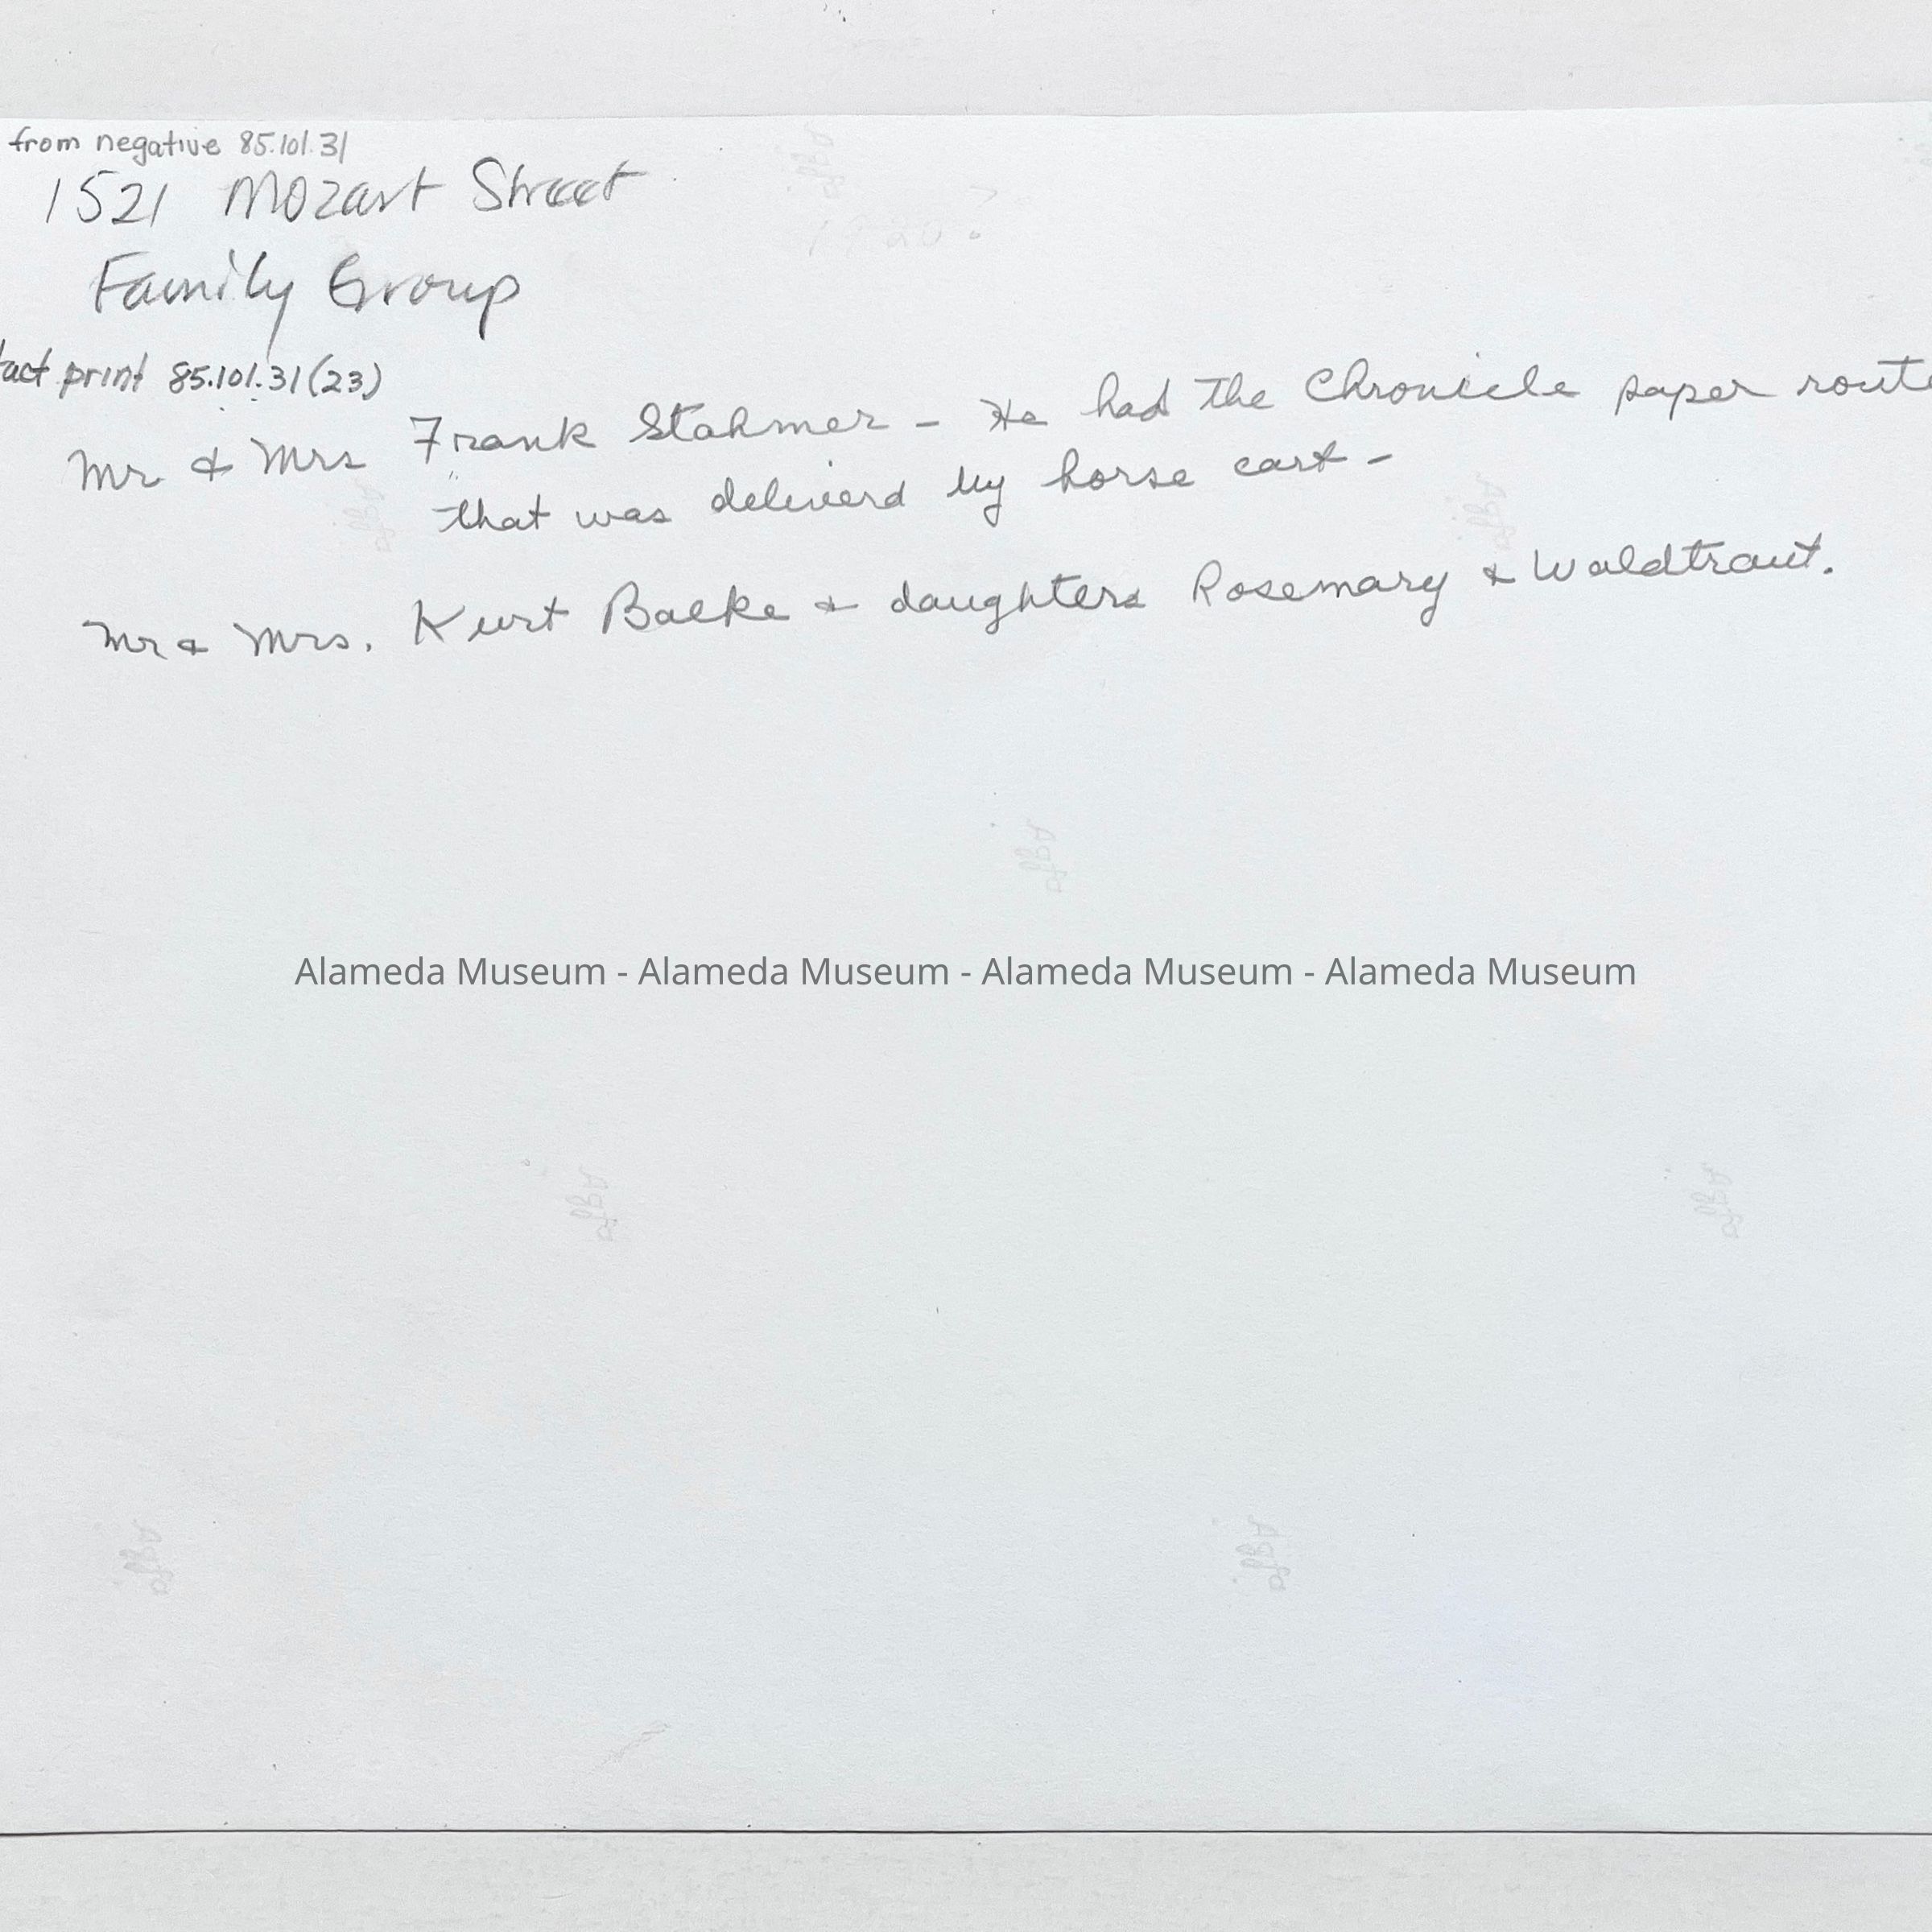 from negative 85.101.31
1521 Mozart Street
Family Group
tact print 85.101.31(23)
Mr & Mrs Frank Stahmer - He had the Chronicle paper route
that was deliverd by horse cart -
Mr & Mrs. Kurt Balke & daughters Rosemary & Waldtraut.
Alameda Museum - Alameda Museum - Alameda Museum - Alameda Museum
Agfa
Agfa
Agfa
Agfa
Agfa
Agfa
Agfa
Agfa